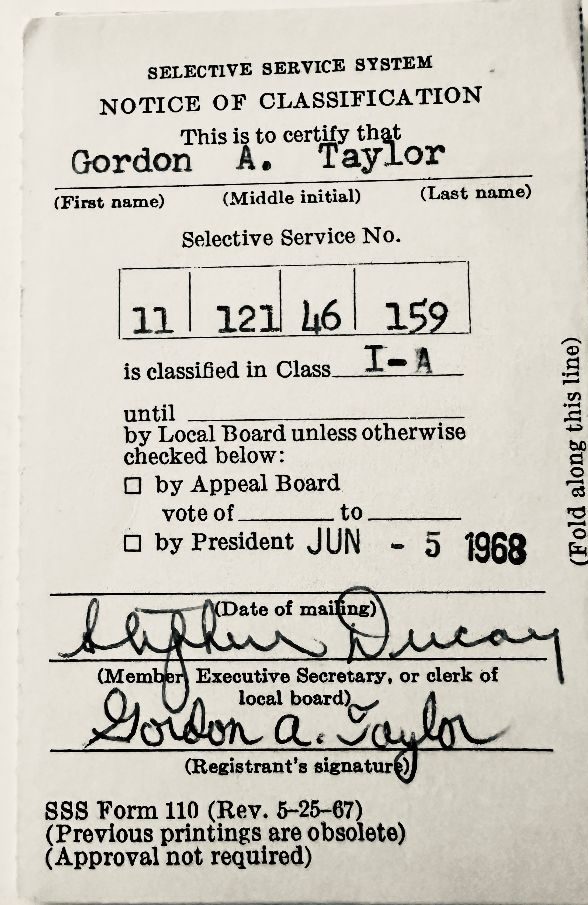 SELECTIVE SERVICE SYSTEM
NOTICE OF CLASSIFICATION
This is to certify that
Gordon A. Taylor
(First name) (Middle initial) (Last name)
Selective Service No.
11 121 46 159
is classified in Class I-A
until
by Local Board unless otherwise
checked below:
☐ by Appeal Board
vote of to
☐ by President JUN - 5 1968
(Date of mailing)
Stephen Ducay
(Member, Executive Secretary, or clerk of
local board)
Gordon A. Taylor
(Registrant's signature)
SSS Form 110 (Rev. 5-25-67)
(Previous printings are obsolete)
(Approval not required)
(Fold along this line)